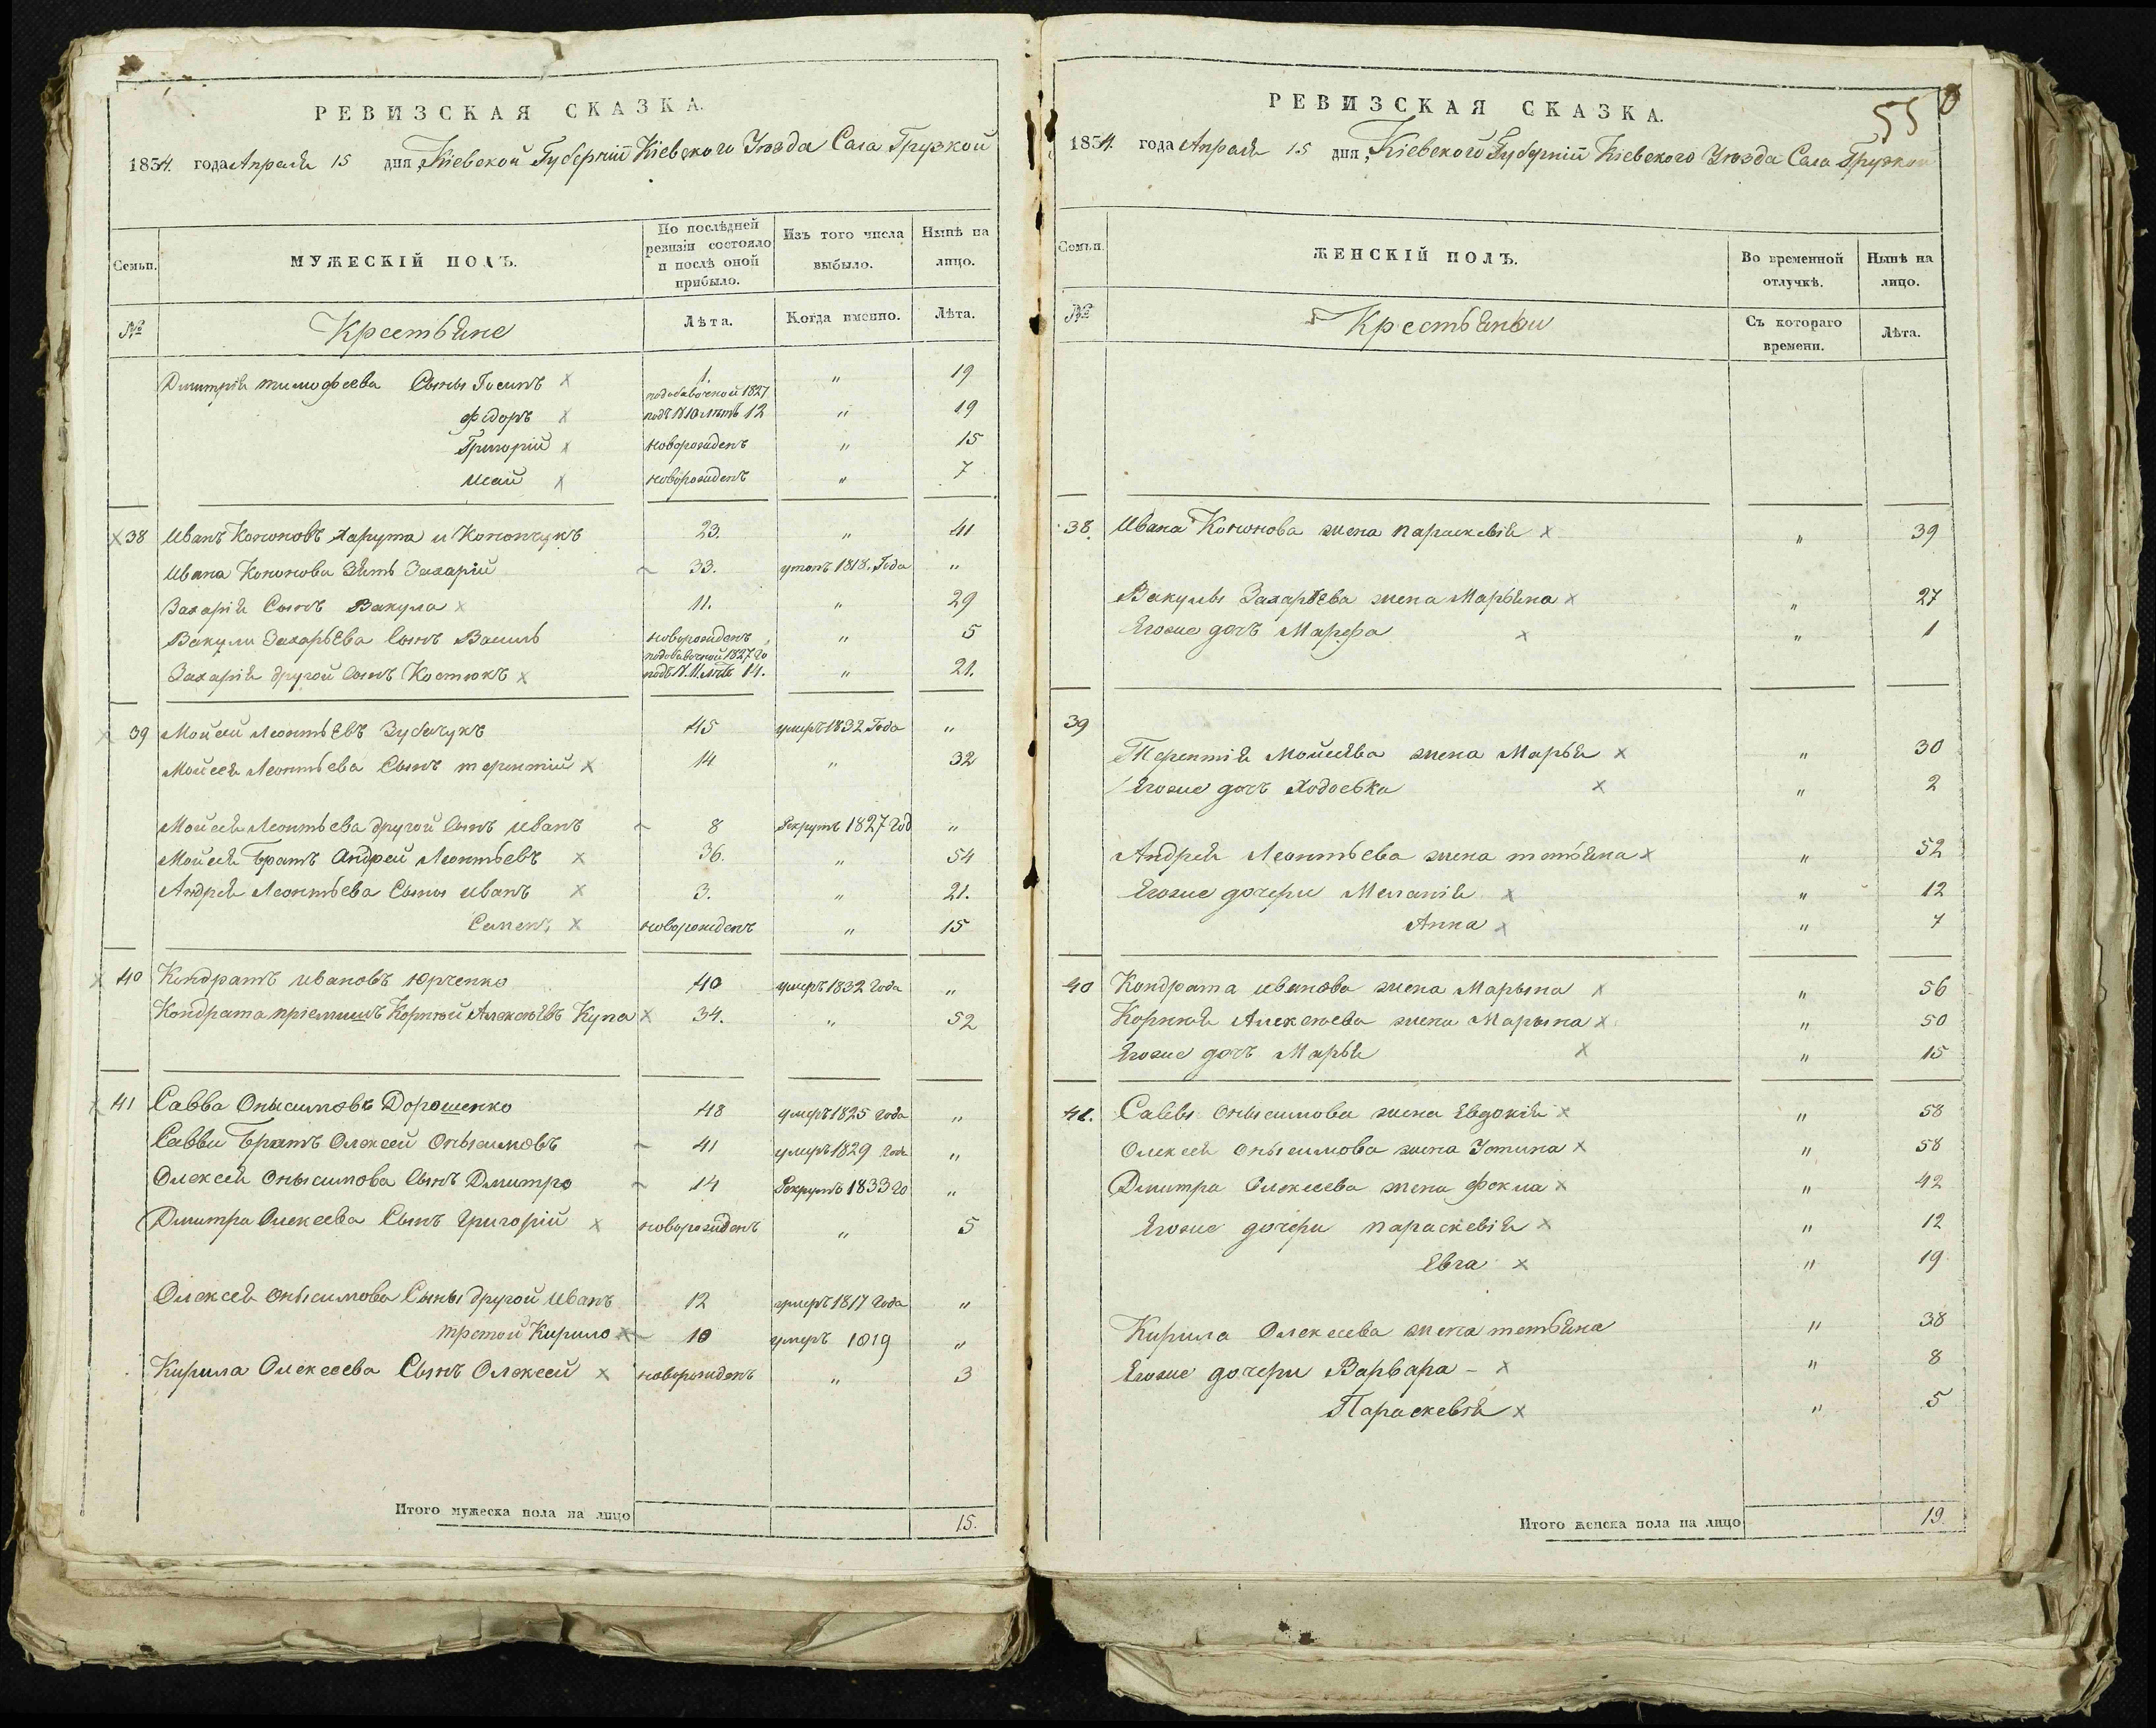 РЕВИЗСКАЯ СКАЗКА.
1834. года Апреля 15 дня, Кіевской Губерніи Кіевского Уѣзда Села Грузкой
Семьи.
МУЖЕСКІЙ ПОЛЪ.
По послѣдней ревизіи состояло и послѣ оной прибыло.
Изъ того числа выбыло.
Нынѣ на лицо.
№
Крестьяне
Лѣта.
Когда именно.
Лѣта.
Дмитрія тимофеева Сыны Іосипъ х 1. " 19
подобавочной 1827
Фідоръ х подъ №10 лѣтъ 12 " 19
Григорій х новорожденъ " 15
Исай х новорожденъ " 7
х 38 Иванъ Кононовъ Харута и Конончукъ 23. " 41
Ивана Кононова Зять Захарій 33. утопъ 1818. Года "
Захарія Сынъ Вакула х 11. " 29
Вакули Захарьева Сынъ Василь новорожденъ " 5
подобавочной 1827 го
Захарія другой Сынъ Костюкъ х подъ №.11. лѣтъ 14. " 21.
х 39 Мойсей Леонтьевъ Зубчукъ 45 умеръ 1832 Года "
Мойсея Леонтьева Сынъ терентій х 14 " 32
Мойсея Леонтьева другой Сынъ Иванъ 8 Рекрутъ 1827 Год "
Мойсея братъ Андрей Леонтьевъ х 36. " 54
Андрея Леонтьева Сыны Иванъ х 3. " 21.
Семенъ х новорожденъ " 15
х 40 Кондратъ Ивановъ Юрченко 40 умеръ 1832 Года "
Кондрата пріемышъ Корній Алексѣевъ Купа х 34. " 52
х 41 Савва Онысимовъ Дорошенко 48 умеръ 1825 Года "
Саввы братъ Олексей Онысимовъ 41 умеръ 1829 Года "
Олексея Онысимова Сынъ Дмитро 14 Рекрутъ 1833 го "
Дмитра Олексеева Сынъ Григорій х новорожденъ " 5
Олексея Онысимова Сыны другой Иванъ 12 умеръ 1817 Года "
третой Кирило х 10 умеръ 1819 "
Кирила Олексеева Сынъ Олексей х новорожденъ " 3
Итого мужеска пола на лицо 15.
РЕВИЗСКАЯ СКАЗКА.
55
1834. года Апреля 15 дня, Кіевского Губерніи Кіевского Уѣзда Села Грузкой
Семьи.
ЖЕНСКІЙ ПОЛЪ.
Во временной отлучкѣ.
Нынѣ на лицо.
№
Крестьянки
Съ котораго времени.
Лѣта.
38. Ивана Кононова жена параскевія х " 39
Вакулы Захарьева жена Марьяна х " 27
Егоже дочъ Марфа х " 1
39
Терентія Мойсеева жена Марья х " 30
Егоже дочъ Ходоська х " 2
Андрея Леонтьева жена тетьяна х " 52
Егоже дочери Меланія х " 12
Анна х " 7
40 Кондрата Иванова жена Марына х " 56
Корнія Алексеева жена Марына х " 50
Егоже дочъ Марья х " 15
41. Саввы Онысимова жена Евдокія х " 58
Олексея Онысимова жена Устина х " 58
Дмитра Олексеева жена Фекла х " 42
Егоже дочери параскевія х " 12
Евга х " 19
Кирила Олексеева жена тетьяна " 38
Егоже дочери Варвара - х " 8
Параскевія х " 5
Итого женска пола на лицо 19.